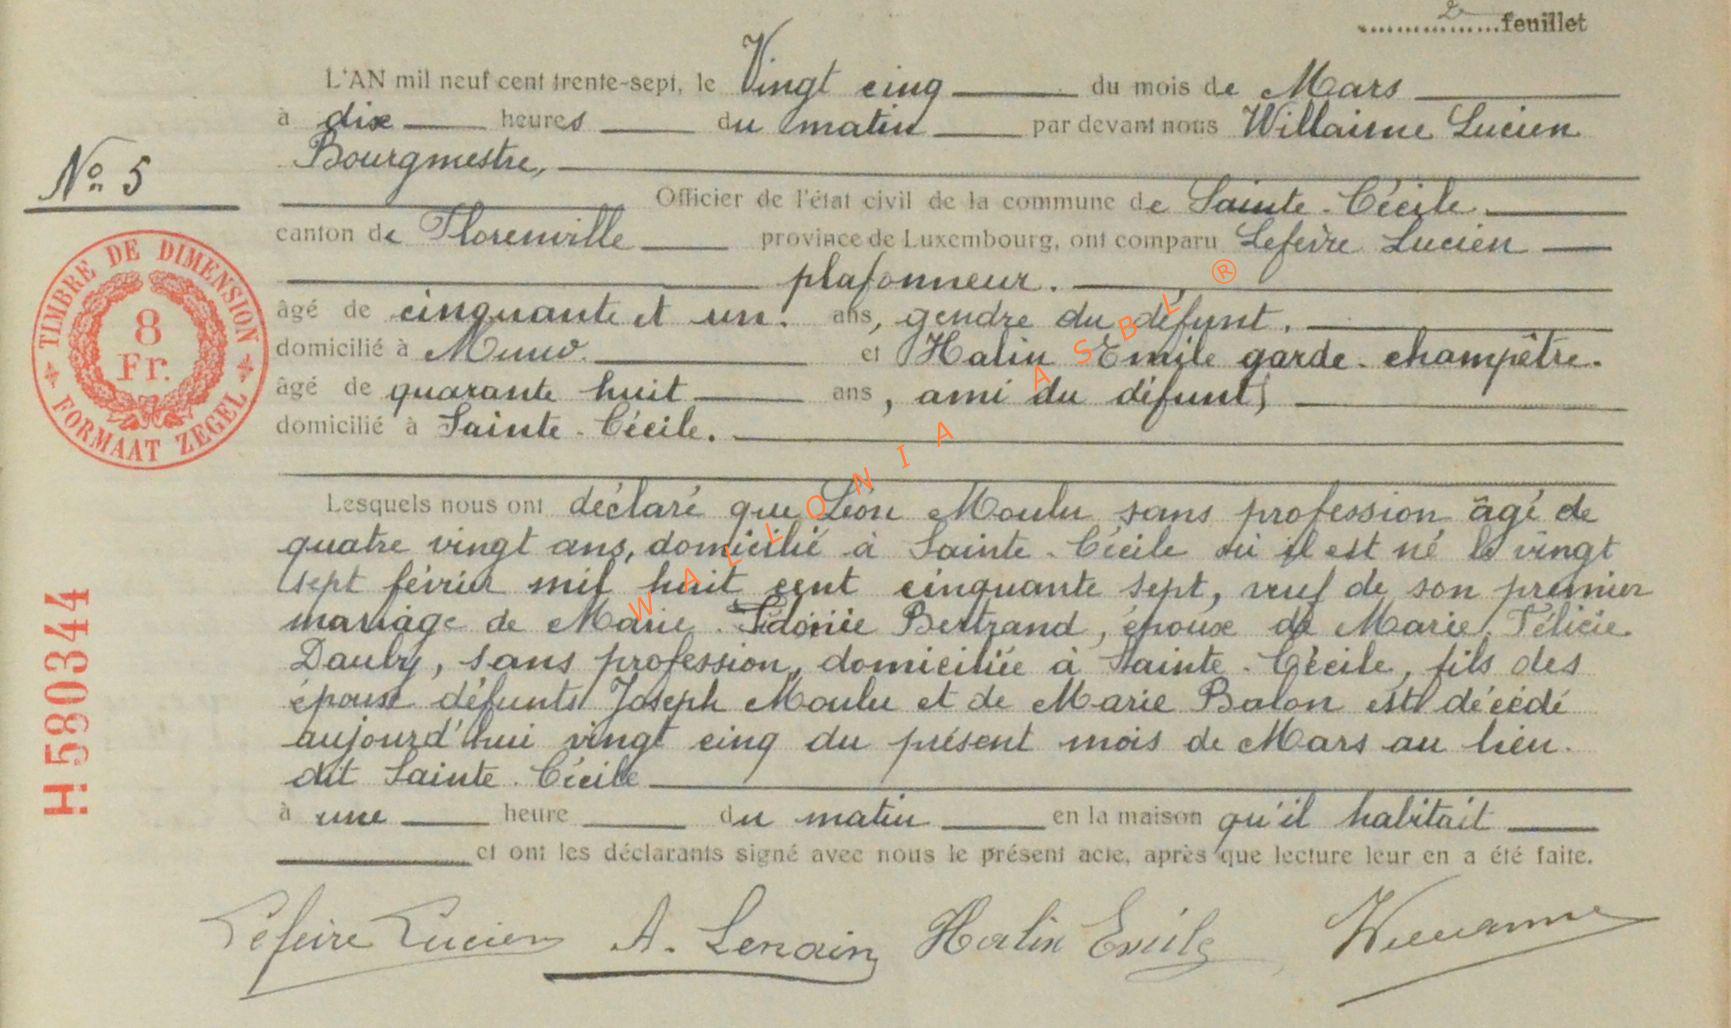 2 feuillet
L'AN mil neuf cent trente-sept, le Vingt cinq du mois de Mars
à dix heures du matin par devant nous Willaime Lucien
Bourgmestre,
N° 5
Officier de l'état civil de la commune de Sainte-Cécile
canton de Florenville province de Luxembourg, ont comparu Lefèvre Lucien
plafonneur.
âgé de cinquante et un. ans, gendre du défunt.
domicilié à Muno. et Halin Emile garde-champêtre.
âgé de quarante huit ans, ami du défunt,
domicilié à Sainte-Cécile.
TIMBRE DE DIMENSION
8
Fr.
FORMAAT ZEGEL
Lesquels nous ont déclaré que Léon Moulu sans profession âgé de
quatre vingt ans, domicilié à Sainte-Cécile où il est né le vingt
sept février mil huit cent cinquante sept, veuf de son premier
mariage de Marie Bertrand, époux de Marie Félicie
Dauby, sans profession, domiciliée à Sainte-Cécile, fils des
époux défunts Joseph Moulu et de Marie Balon est décédé
aujourd'hui vingt cinq du présent mois de Mars au lieu
dit Sainte-Cécile
à une heure du matin en la maison qu'il habitait
et ont les déclarants signé avec nous le présent acte, après que lecture leur en a été faite.
H580344
Lefèvre Lucien A. Lenain Halin Emile Willaime
WALLONIA ASBL ®